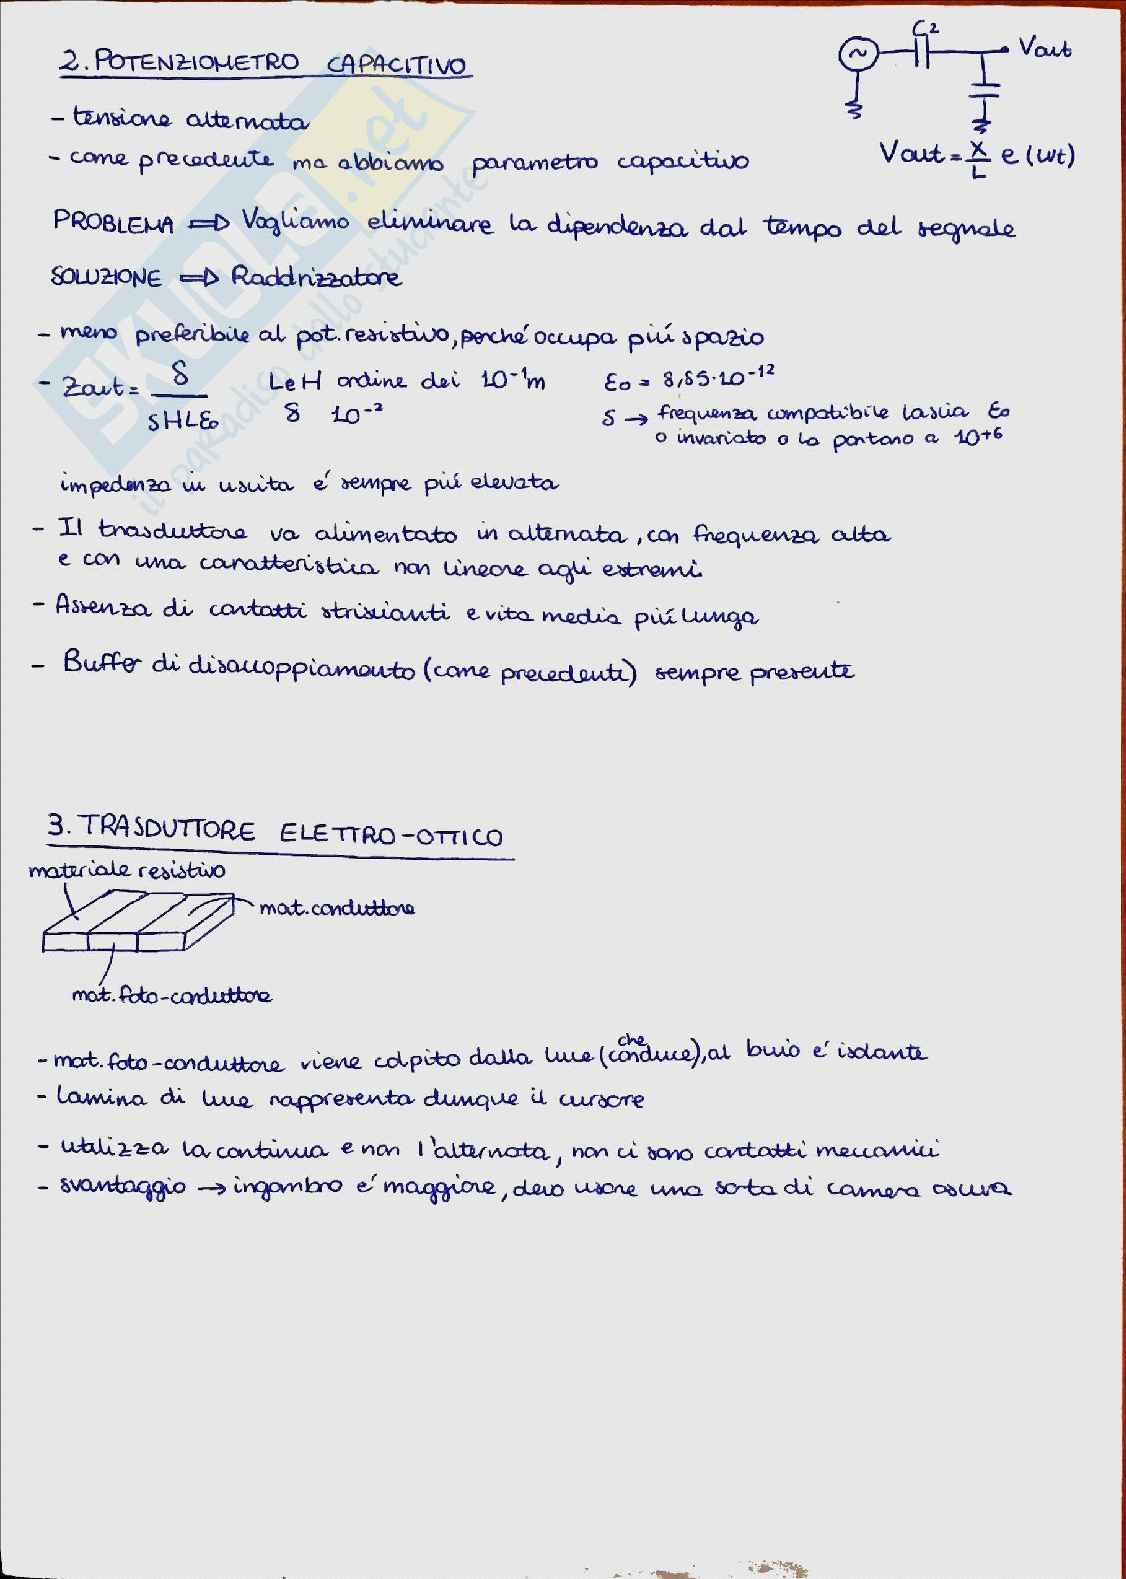 2. POTENZIOMETRO CAPACITIVO
C2
Vout
- tensione alternata
- come precedente ma abbiamo parametro capacitivo
Vout = X/L e (wt)
PROBLEMA ⇒ Vogliamo eliminare la dipendenza dal tempo del segnale
SOLUZIONE ⇒ Raddrizzatore
- meno preferibile al pot. resistivo, perché occupa piú spazio
- Zout = δ / sHLεo   L e H ordine dei 10⁻¹m   εo = 8,85·10⁻¹²
δ 10⁻²   s → frequenza compatibile lascia εo
o invariato o la portano a 10⁺⁶
impedenza in uscita é sempre piú elevata
- Il trasduttore va alimentato in alternata, con frequenza alta
e con una caratteristica non lineare agli estremi
- Assenza di contatti striscianti e vita media piú lunga
- Buffer di disaccoppiamento (come precedenti) sempre presente
3. TRASDUTTORE ELETTRO-OTTICO
materiale resistivo
mat. conduttore
mat. foto-conduttore
- mat. foto-conduttore viene colpito dalla luce (che conduce), al buio é isolante
- Lamina di luce rappresenta dunque il cursore
- utilizza la continua e non l'alternata, non ci sono contatti meccanici
- svantaggio → ingombro é maggiore, devo usare una sorta di camera oscura
SKUOLA.net
il paradiso dello studente